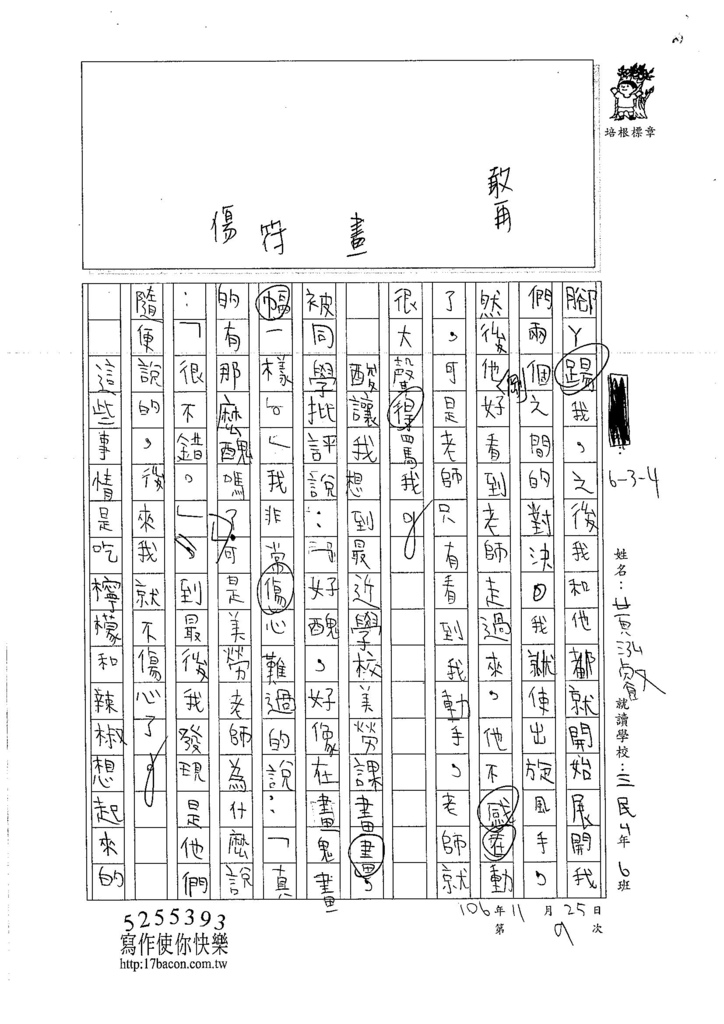 培根標章
敢再
畫
符
傷
6-3-4
姓名：黃泓 就讀學校：三民4年6班
106年11月25日
第9次
腳丫踢我，之後我和他都就開始展開我
們兩個之間的對決。我就使出旋風手，
然後他剛好看到老師走過來，他不感在動
了，可是老師只有看到我動手，老師就
很大聲得罵我。
酸讓我想到最近學校美勞課畫畫，
被同學批評說：「好醜，好像在畫鬼畫
幅一樣ㄅ」我非常傷心難過的說：「真
的有那麼醜嗎？可是美勞老師為什麼說
：「很不錯。」」到最後我發現是他們
隨便說的，後來我就不傷心了。
這些事情是吃檸檬和辣椒想起來的
5255393
寫作使你快樂
http:17bacon.com.tw